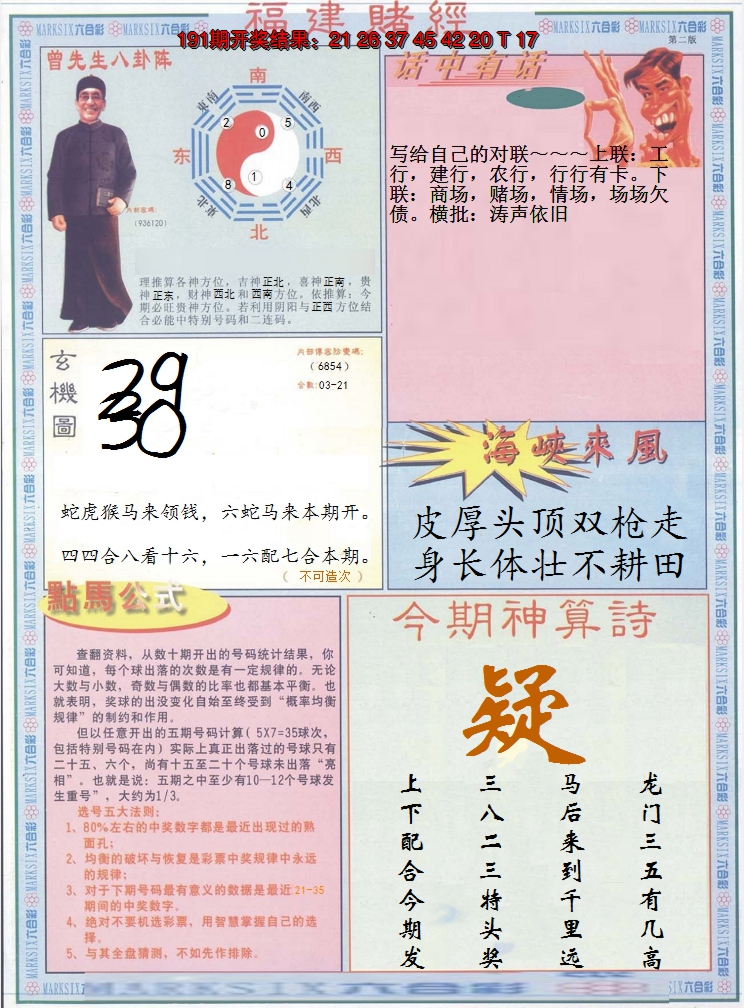 福建賭經
191期开奖结果：21 26 37 45 42 20 T 17
第二版
曾先生八卦陈
南
东南
西南
2
5
0
东
西
1
8
4
东北
西北
北
内部密碼：
（936120）
理推算各神方位，吉神正北，喜神正南，贵
神正东，财神西北和西南方位。依推算：今
期必旺贵神方位。若利用阴阳与正西方位结
合必能中特别号码和二连码。
话中有话
写给自己的对联～～～上联：工
行，建行，农行，行行有卡。下
联：商场，赌场，情场，场场欠
债。横批：涛声依旧
玄機圖
（6854）
合数：03-21
蛇虎猴马来领钱，六蛇马来本期开。
四四合八看十六，一六配七合本期。
（ 不可造次 ）
海峽來風
皮厚头顶双枪走
身长体壮不耕田
點馬公式
查翻资料，从数十期开出的号码统计结果，你
可知道，每个球出落的次数是有一定规律的。无论
大数与小数，奇数与偶数的比率也都基本平衡。也
就表明，奖球的出没变化自始至终受到“概率均衡
规律”的制约和作用。
但以任意开出的五期号码计算（5X7=35球次，
包括特别号码在内）实际上真正出落过的号球只有
二十五、六个，尚有十五至二十个号球未出落“亮
相”。也就是说：五期之中至少有10—12个号球发
生重号”，大约为1/3。
选号五大法则：
1、80%左右的中奖数字都是最近出现过的熟
面孔；
2、均衡的破坏与恢复是彩票中奖规律中永远
的规律；
3、对于下期号码最有意义的数据是最近21-35
期间的中奖数字。
4、绝对不要机选彩票，用智慧掌握自己的选
择。
5、与其全盘猜测，不如先作排除。
今期神算詩
疑
龙门三五有几高
马后来到千里远
三八二三特头奖
上下配合今期发
MARKSIX六合彩